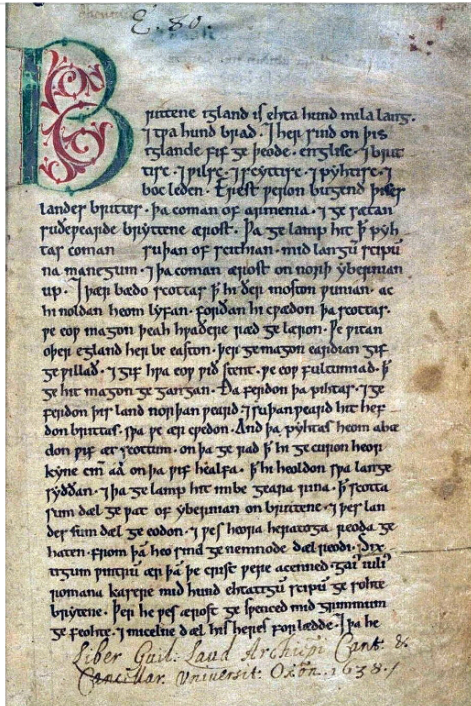 E. 80.
Brittene igland is ehta hund mila lang.
⁊ tƿa hund brad. ⁊ her sind on þis
iglande fif ge þeode. englisc. ⁊ brit
tisc. ⁊ ƿilsc. ⁊ scyttisc. ⁊ pyhtisc. ⁊
boc leden. Erest ƿeron bugend þises
landes brittes. þa coman of armenia. ⁊ ge sætan
suðeƿearde bryttene ærost. Þa ge lamp hit ꝥ pyh
tas coman suþan of scithian. mid langū scipū
na manegum. ⁊ þa coman ærost on norþ ybernian
up. ⁊ þær bædo scottas ꝥ hi ðer moston ƿunian. ac
hi noldan heom lyfan. forðan hi cƿædon þa scottas.
ƿe eoƿ magon þeah hƿaðere ræd ge læron. Ƿe ƿitan
oþer egland her be easton. þer ge magon eardian gif
ge ƿillað. ⁊ gif hƿa eoƿ ƿið stent. ƿe eoƿ fultumiað. ꝥ
ge hit magon ge gangan. Ða ferdon þa pihtas. ⁊ ge
ferdon þis land norþan ƿeard. ⁊ suþan ƿeard hit hef
don brittas. sƿa ƿe ær cƿedon. And þa pyhtas heom abæ
don ƿif æt scottum. on þa ge rad ꝥ hi ge curon heora
kyne cinn aa on þa ƿif healfa. ꝥ hi heoldon sƿa lange
syððan. ⁊ þa ge lamp hit imbe geara rina. ꝥ scotta
sum dæl ge ƿat of ybernian on brittene. ⁊ þes lan
des sum dæl ge eodon. ⁊ ƿes heora heratoga reoda ge
haten. from þā heo sind ge nemnode dæl reodi. Six
tigum ƿintrū ær þā þe crist ƿere acenned. gaiꝰ iuliꝰ
romana kasere mid hund ehtatigū scipū ge sohte
brytene. Þer he ƿes ærost ge sƿenced mid grimmum
ge feohte. ⁊ micelne dæl his heres for lædde. ⁊ þa he
Liber Guil: Laud Archiepi Cant: &
Cancillar. Universit: Oxon. 1638.